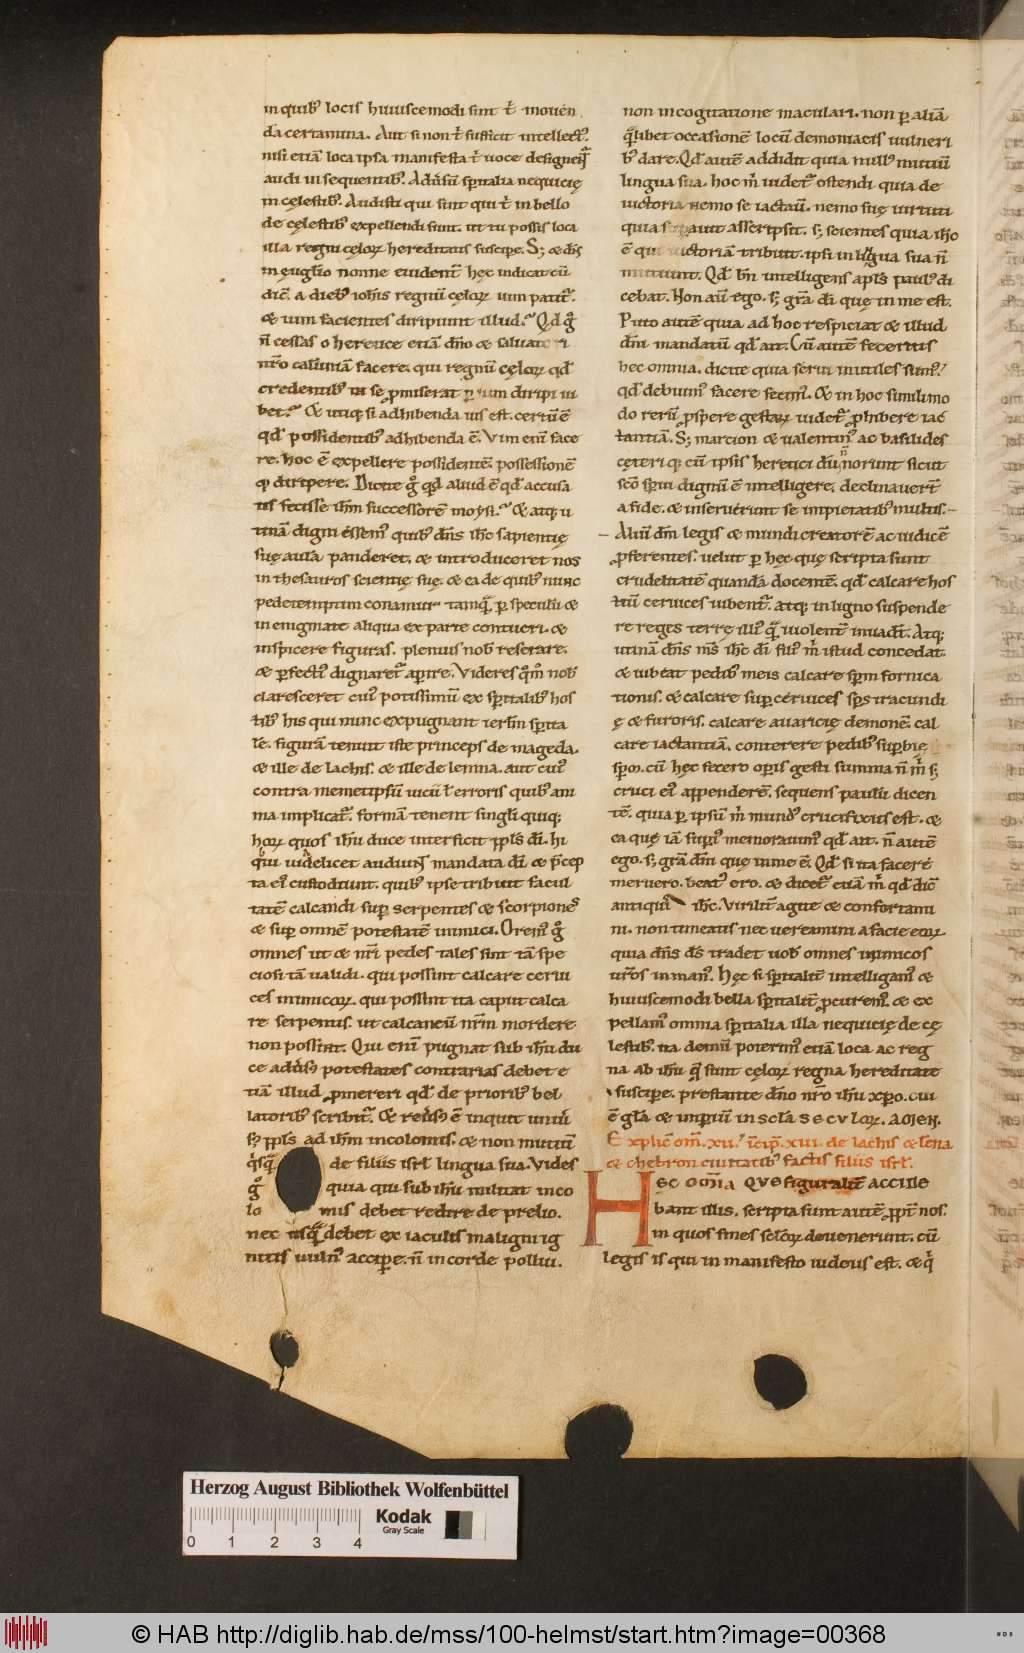 in quib; locis huiuscemodi sint t̄ mouen
da certamina. Aut si non t̄ sufficit intellect;
nisi etiā loca ipsa manifesta t̄ uoce designent̄
audi in sequentib;. Adūsū spitalia nequicię
in cęlestib;. Audisti qui sunt qui t̄ in bello
de cęlestib; expellendi sunt. ut tu possis loca
illa regni cęloꝝ hereditatis suscipe. S;
in euglio nonne euident̄ hęc indicat cū
dic̄. a dieb; iohis regnū cęloꝝ uim patit̄.
& uim facientes diripiunt illud. Qd g̊
n̄ cessas o heretice etiā dn̄o & saluatori
nr̄o calūniā facere. qui regnū cęloꝝ qd̄
credentib; in se ꝓmiserat ꝑ uim diripi iu
bet. & utiq; si adhibenda uis est. certū ē
qd̄ possidentib; adhibenda ē. Vim eni face
re. hoc ē expellere possidentē. possessionē
q; diripere. Dicite g̊ qd aliud ē qd̄ accusa
tis fecisse ihm successorē moysi. & atq; u
tinā digni essem; quib; dn̄s ihc sapientię
suę aula panderet. & introduceret nos
in thesauros scientię suę. & ea de quib; nunc
pedetemptim conamur tamquā ꝑ speculū &
in enigmate aliqua ex parte contueri. &
inspicere figuras. plenius nob̄ reserare.
& ꝑfecti; dignaret̄ aperire. Videres qm̄ nob̄
claresceret cui; potissimū ex spitalib; hos
tib; his qui nunc expugnant ierlm spita
lē. figurā tenuit iste princeps de mageda.
& ille de lachis. & ille de lemna. aut cui;
contra memetipsū uicii t erroris quib; ani
ma implicat̄. formā tenent singli quiq;
hoꝝ quos ihu duce interficit ppls di. hi
qui uidelicet audiunt mandata di & p̄cep
ta ei; custodiunt. quib; ipse tribuit facul
tatē calcandi sup serpentes & scorpiones
& sup omnē potestatē inimici. Orem; g̊
omnes ut & nr̄i pedes tales sint tā spe
ciosi tā ualidi. qui possint calcare cerui
ces inimicoꝝ. qui possint ita caput calca
re serpentis. ut calcaneū nr̄m mordere
non possint. Qui enī pugnat sub ihu du
ce adūsꝰ potestates contrarias debet e
tiā illud ꝓmereri qd̄ de priorib; bel
latorib; scribit̄. & reūsꝰ ē inquit uniū
sꝰ ppls ad ihm incolomis. & non mutiuit
q̄sq̄ de filiis isrl lingua sua. Vides
g̊ quia qui sub ihu militat inco
lo mis debet redire de prelio.
nec usq̄ debet ex iaculis maligni ig
nitis uuln; accipe. n̄ in corde pollui.
non in cogitatione maculari. non ꝑ aliā
q̄libet occasionē locū demoniacis uulneri
b; dare. Qd̄ autē addidit quia null; mutiuit
lingua sua. hoc m̄ uidet̄ ostendi quia de
uictoria nemo se iactauit. nemo suę uirtuti
quia superauit asscripsit. s; scientes quia ihc
ē qui uictoriā tribuit. ipsi in lingua sua n̄
mutiunt. Qd̄ bn̄ intelligens apls paul; di
cebat. Non aū ego. s; gra di quę in me est.
Puto autē quia ad hoc respiciat & illud
dn̄i mandatū qd̄ ait. Cū autē feceritis
hec omnia. dicite quia serui inutiles sum;.
qd̄ debuim; facere fecim;. & in hoc simili mo
do rerū pspere gestaꝝ uidet̄ ꝓhibere iac
tantiā. S; marcion & ualentin; ac basilides
cęteri q; cū ipsis heretici dū norunt sicut
sco spui dignū ē intelligere. declinauert̄
a fide. & inseruerunt se impietatib; multis.
Aliū dm̄ legis & mundi creatorē ac iudicē
ꝓferentes. uelut ꝑ hęc quę scripta sunt
crudelitatē quandā docentē. qd̄ calcare hos
tiū ceruices iubent̄. atq; in ligno suspende
re reges terrę illi; quā uiolent̄ inuadit̄. Atq;
utinā dn̄s ms̄ ihc di fili; m̄ istud concedat.
& iubeat pedib; meis calcare spm fornica
tionis. & calcare sup ceruices sps iracundi
ę & furoris. calcare auaricię demonē. cal
care iactantiā. conterere pedib; supbię
spm. cū hęc fecero opis gesti summā n̄ m̄ s;
cruci ei; appenderē. sequens paulū dicen
tē. quia ꝑ ipsū m̄ mund; crucifixus est. &
ea quę iā sup; memorauim; qd̄ ait. n̄ autē
ego. s; gra dn̄i quę in me ē. Qd̄ si ita facere
meruero. beat; ero. & dicet̄ etiā m̄ qd̄ dic̄
antiquis ihc. Virilit̄ agite & confortami
ni. non timeatis nec uereamini a facie eoꝝ.
quia dn̄s ds̄ tradet uob̄ omnes inimicos
ur̄os in man;. Hęc si spitalit̄ intelligam; &
huiuscemodi bella spitalit̄ ꝓcurem;. & ex
pellam; omnia spitalia illa nequicię de cę
lestib;. ita demū poterim; etiā loca ac reg
na ab ihu quę sunt cęloꝝ regna hereditate
suscipe. prestante dn̄o nr̄o ihu xpo. cui
ē gla & impiū in scla seculoꝝ. amen.
Explic̄ om̄. xii. incip̄. xiii. de lachis & lēna
& chebron ciuitatib; factis filiis isrl.
Hec omia que figuralit̄ accide
bant illis. scripta sunt autē ꝓpt̄ nos.
in quos fines scloꝝ deuenerunt. cū
legis is qui in manifesto iudeus est. & q̄
Herzog August Bibliothek Wolfenbüttel
Kodak
Gray Scale
0 1 2 3 4
© HAB http://diglib.hab.de/mss/100-helmst/start.htm?image=00368